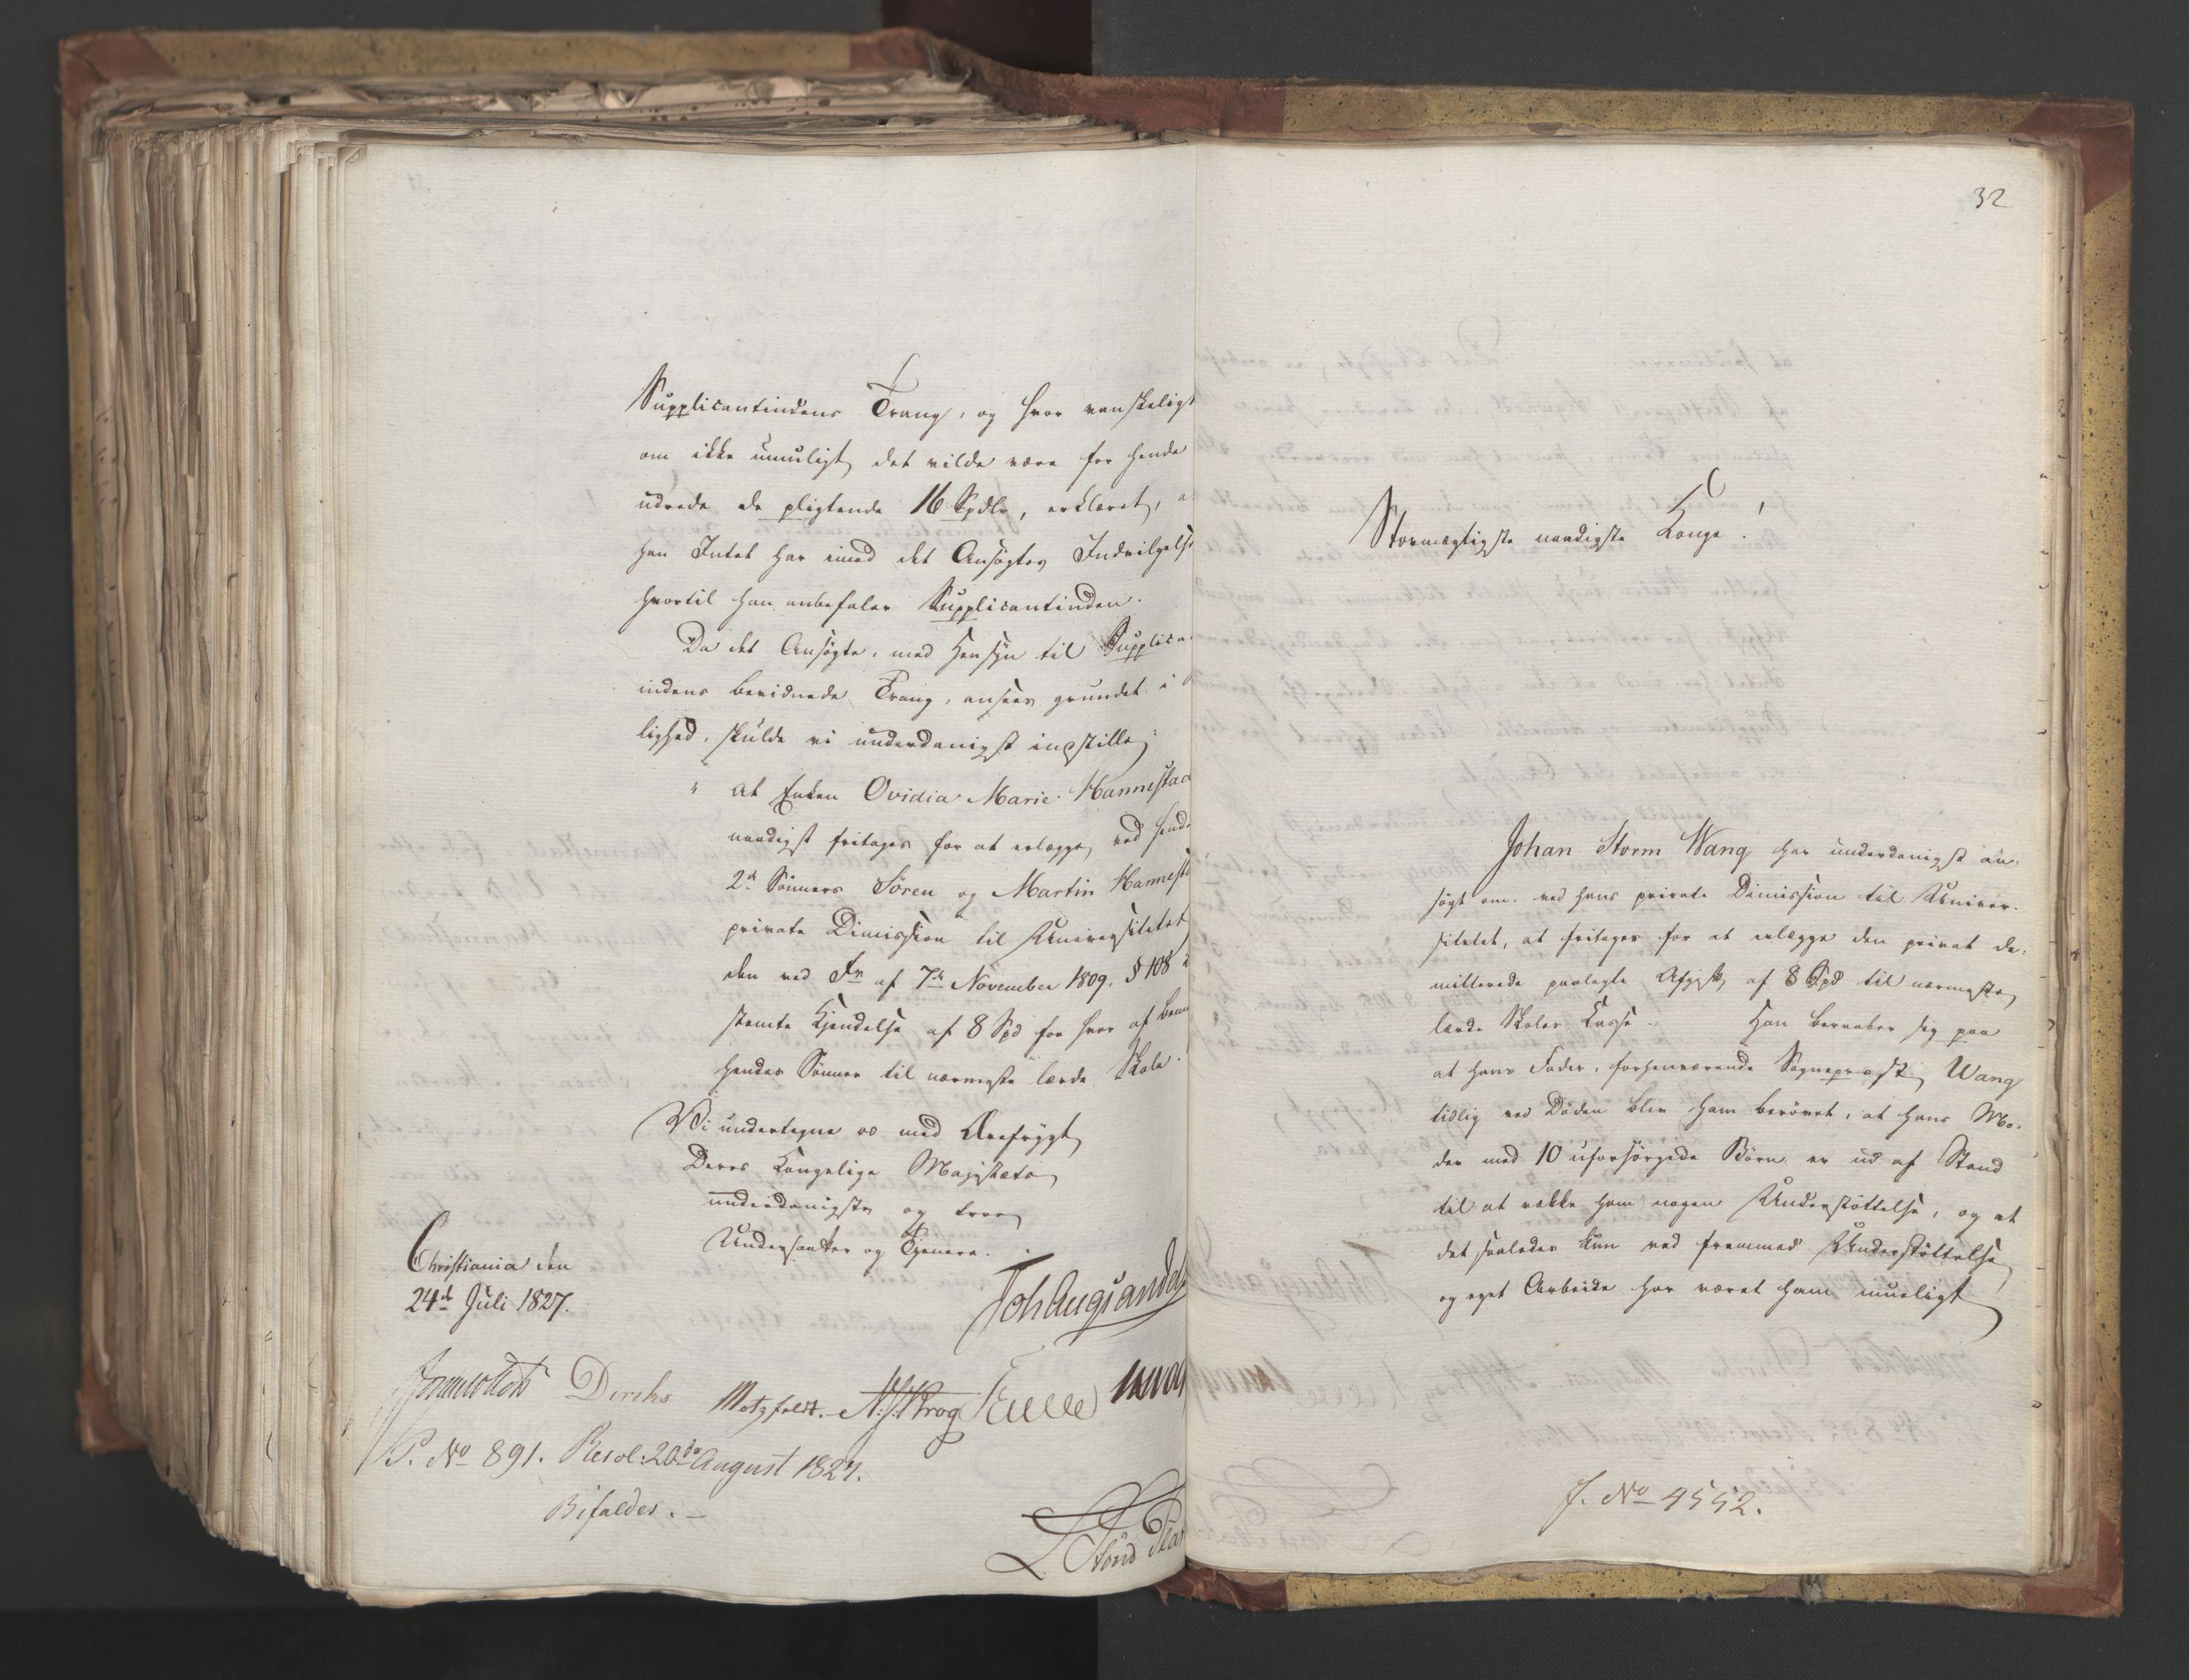 Supplicantindens Trang, og hvor vanskeligt
om ikke umuligt det vilde være for hende
udrede de pligtende 16 Spdlr, erklæret, a
han Intet har imod det Ansøgtes Indvilgelse
hvortil han anbefaler Supplicantinden.
Da det Ansøgte, med Hensyn til Supplica
indens bevidnede Trang, ansees grundet i
lighed, skulde vi underdanigst indstille:
" at Enken Ovidia Marie Hannestad
naadigst fritages for at erlægge, ved hende
2de Sønners Søren og Martin Hannesta
private Dimission til Universitetet
den ved Fr af 7de November 1809. § 108
stemte Kjendelse af 8 Spd for hver af bem
hendes Sønner til nærmeste lærde Skole.
Vi undertegne os med Ærefrygt
Deres Kongelige Majestæts
underdanigste og troe
Undersaatter og Tjenere.
Christiania den
24de Juli 1827.
Joh Aug Sandels
Sommerfeldt Diriks Motzfeldt. Krog
P. No 891. Resol: 20de August 1827.
Bifaldes. -
32
Stormægtigste naadigste Konge!
Johan Storm Wang har underdanigst an-
søgt om, ved hans private Dimission til Univer-
sitetet, at fritages for at erlægge den privat de-
mitterede paalagte Afgift af 8 Spd til nærmeste
lærde Skoles Kasse. Han beraaber sig paa
at hans Fader, forhenværende Sogneprest Wang
tidlig ved Døden blev ham berøvet, at hans Mo-
der med 10 uforsørgede Børn er ud af Stand
til at række ham nogen Understøttelse, og at
det saaledes kun ved fremmed Understøttelse
og eget Arbeide har været ham mueligt
J. No 4552.